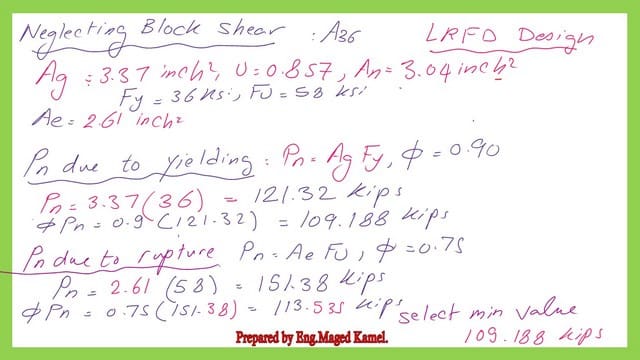 Neglecting Block shear : A36 LRFD Design
Ag = 3.37 inch², U = 0.857, An = 3.04 inch²
Fy = 36 Ksi, FU = 58 ksi
Ae = 2.61 inch²
Pn due to yielding : Pn = Ag Fy, ϕ = 0.90
Pn = 3.37 (36) = 121.32 Kips
ϕ Pn = 0.9 (121.32) = 109.188 Kips
Pn due to rupture Pn = Ae FU, ϕ = 0.75
Pn = 2.61 (58) = 151.38 Kips
ϕ Pn = 0.75 (151.38) = 113.535 Kips select min value
109.188 Kips
Prepared by Eng.Maged Kamel.